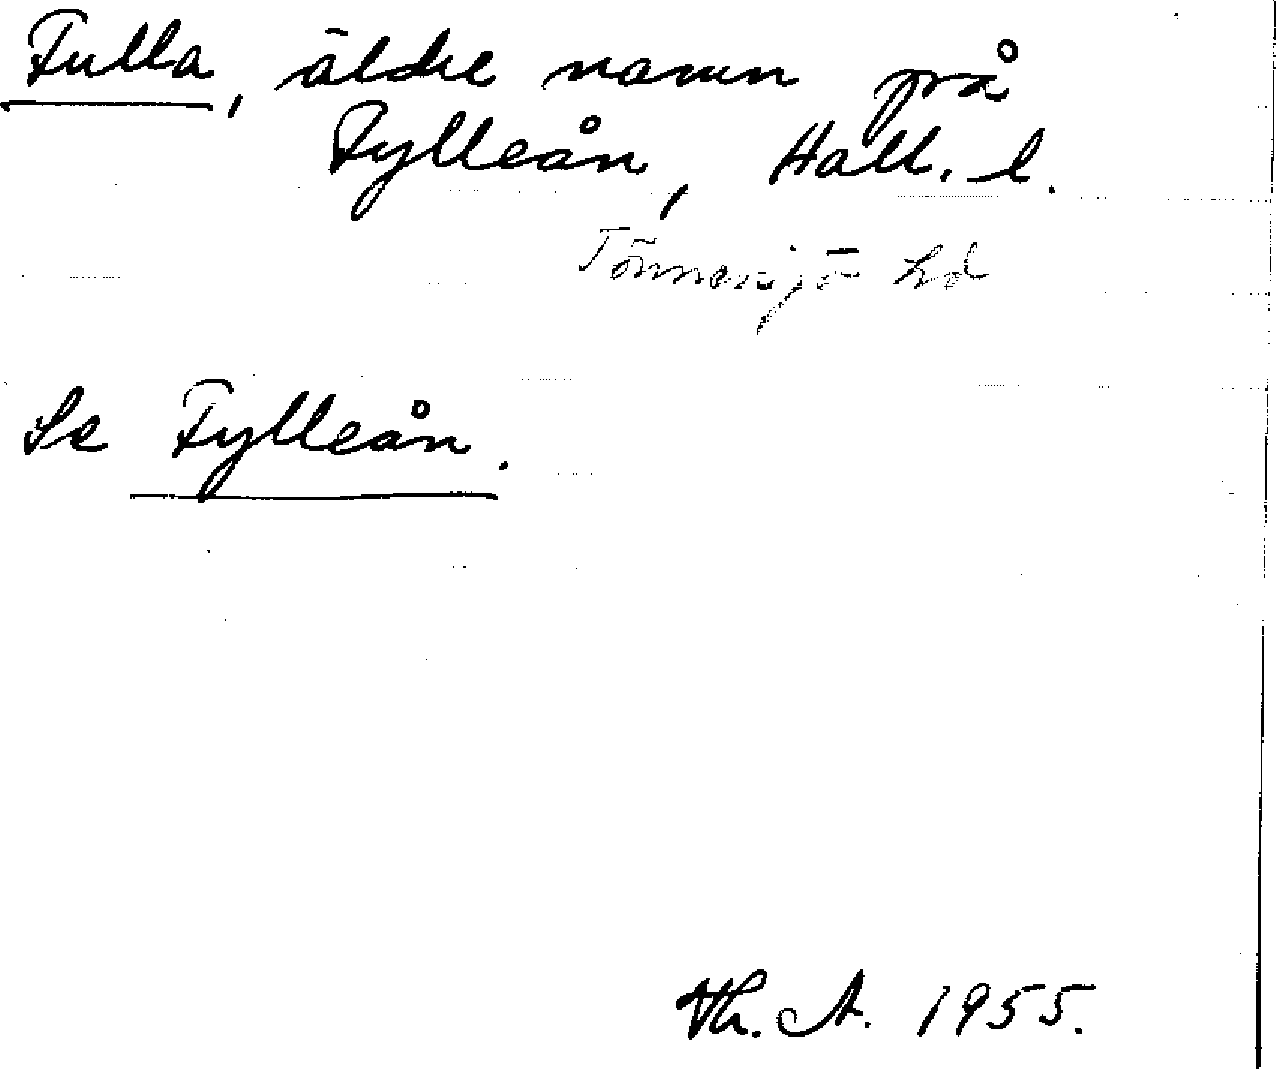 Fulla, äldre namn på
Fylleån, Hall. l.
Tönnersjö hd
Se Fylleån.
Th. A. 1955.